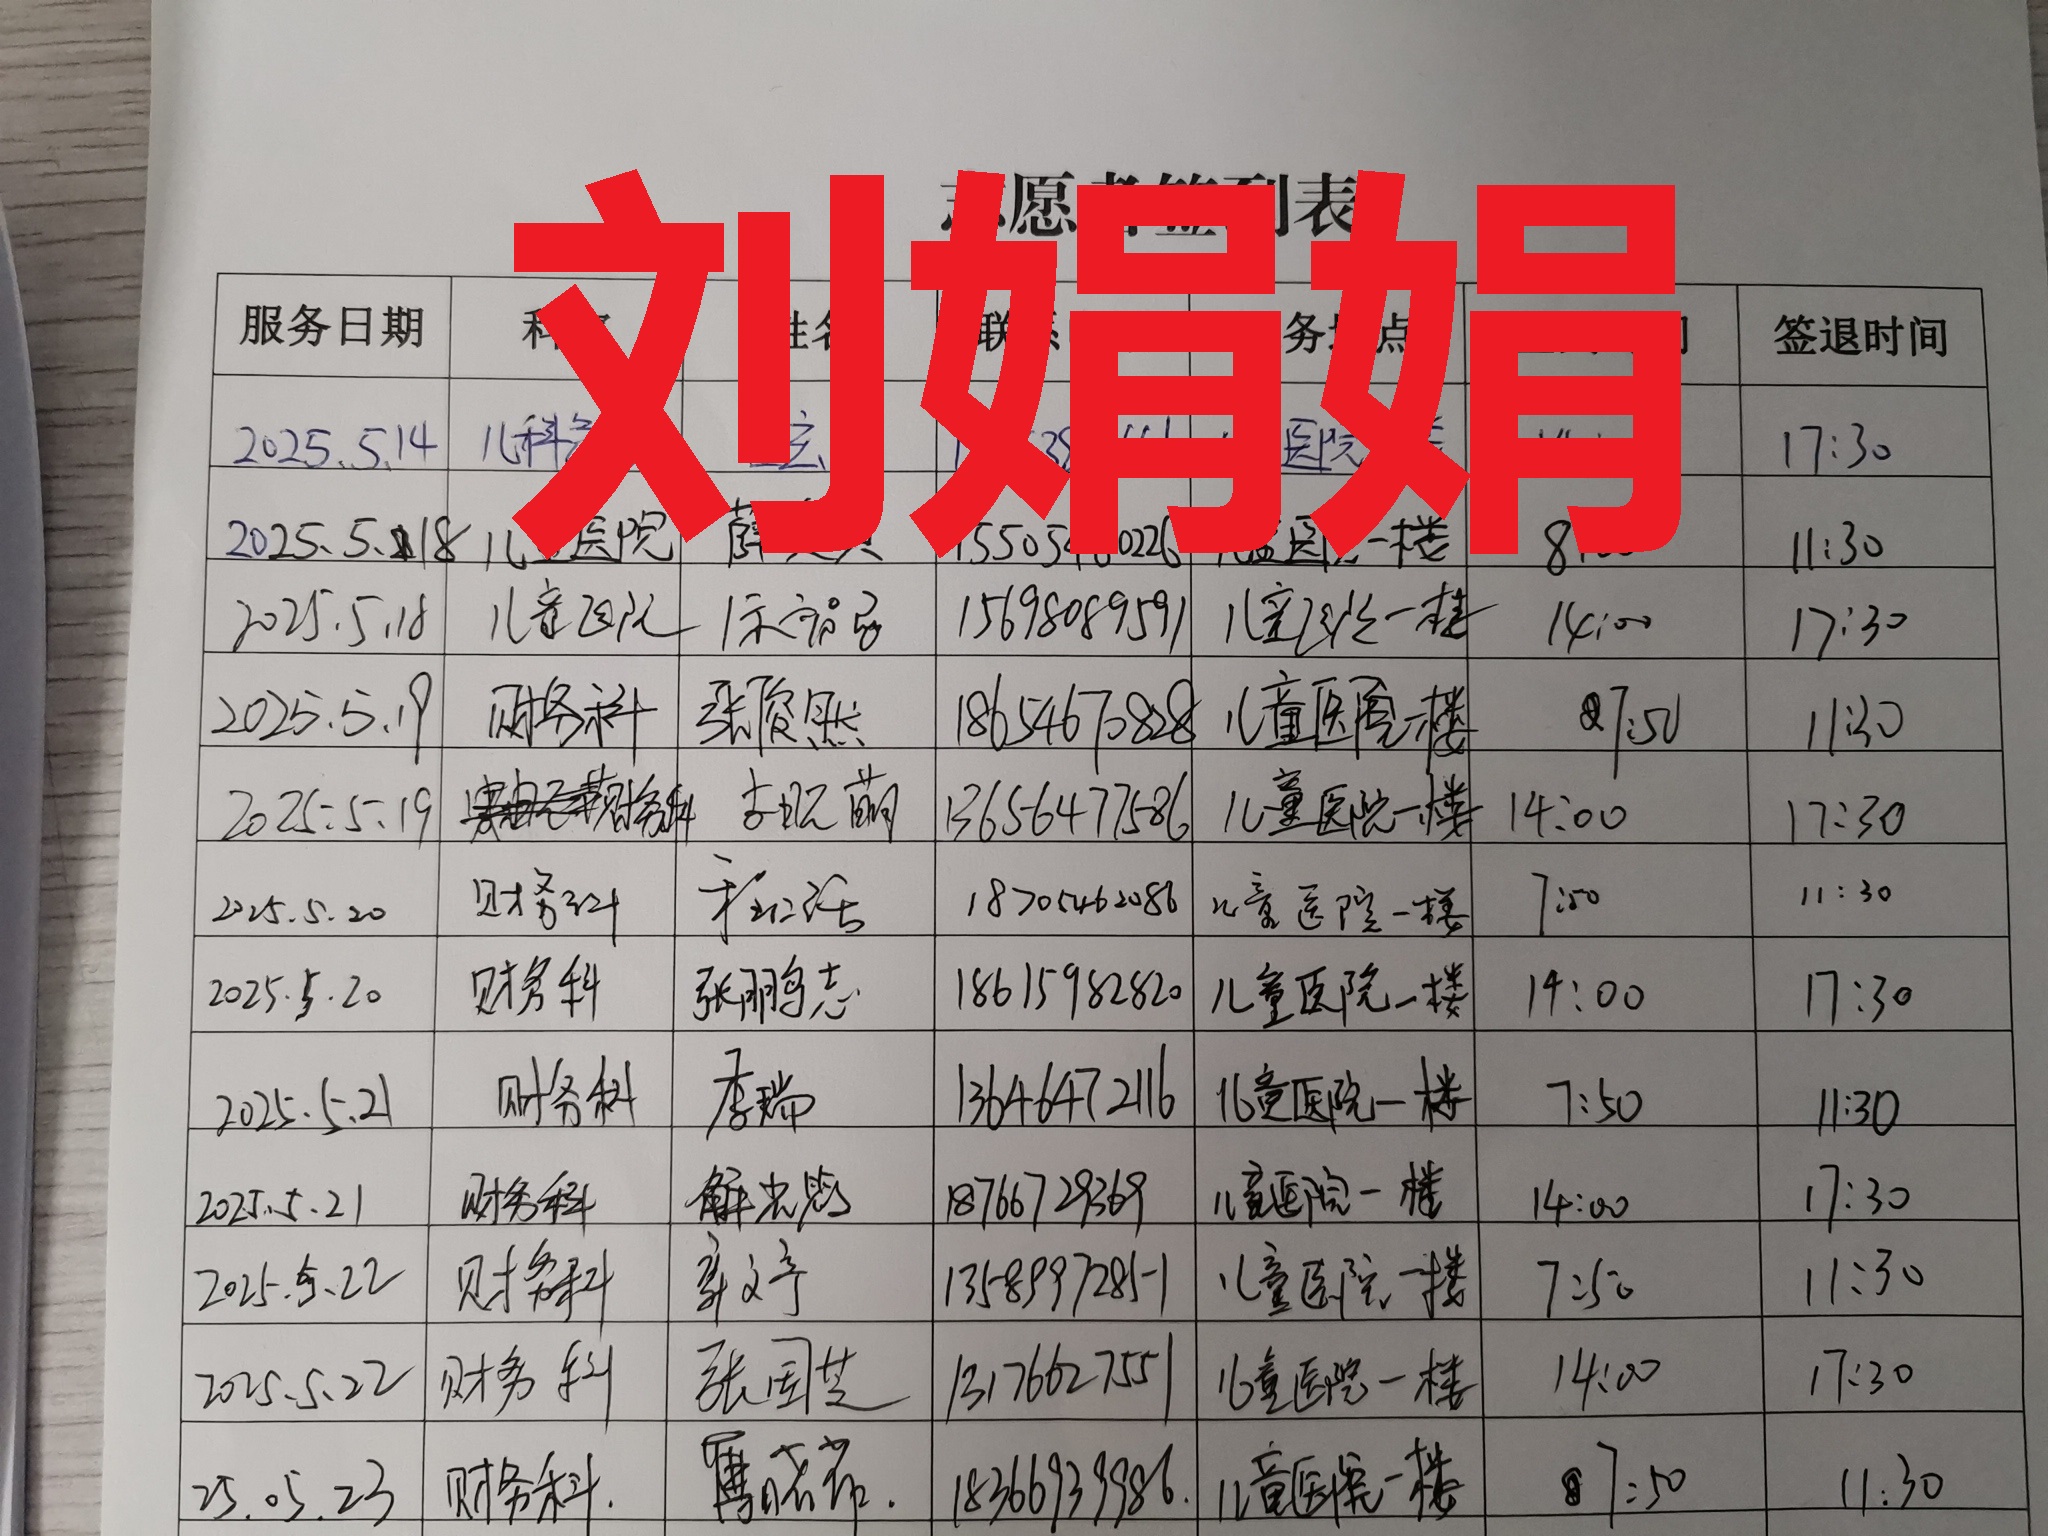 刘娟娟
志愿者签到表
服务日期 科室 姓名 联系 务地点 间 签退时间
2025.5.14 儿科 医院 17:30
2025.5.18 儿童医院 薛 儿童医院一楼 11:30
2025.5.18 儿童医院 15698089591 儿童医院一楼 14:00 17:30
2025.5.19 财务科 张俊然 18654670828 儿童医院一楼 7:50 11:30
2025.5.19 财务科 萌 13656477586 儿童医院一楼 14:00 17:30
2025.5.20 财务科 18705462086 儿童医院一楼 7:50 11:30
2025.5.20 财务科 张鹏志 18615982820 儿童医院一楼 14:00 17:30
2025.5.21 财务科 李瑞 13646472116 儿童医院一楼 7:50 11:30
2025.5.21 财务科 解 18766729369 儿童医院一楼 14:00 17:30
2025.5.22 财务科 13589972851 儿童医院一楼 7:50 11:30
2025.5.22 财务科 张国芝 13176627551 儿童医院一楼 14:00 17:30
25.05.23 财务科. 18366939986. 儿童医院一楼 7:50 11:30